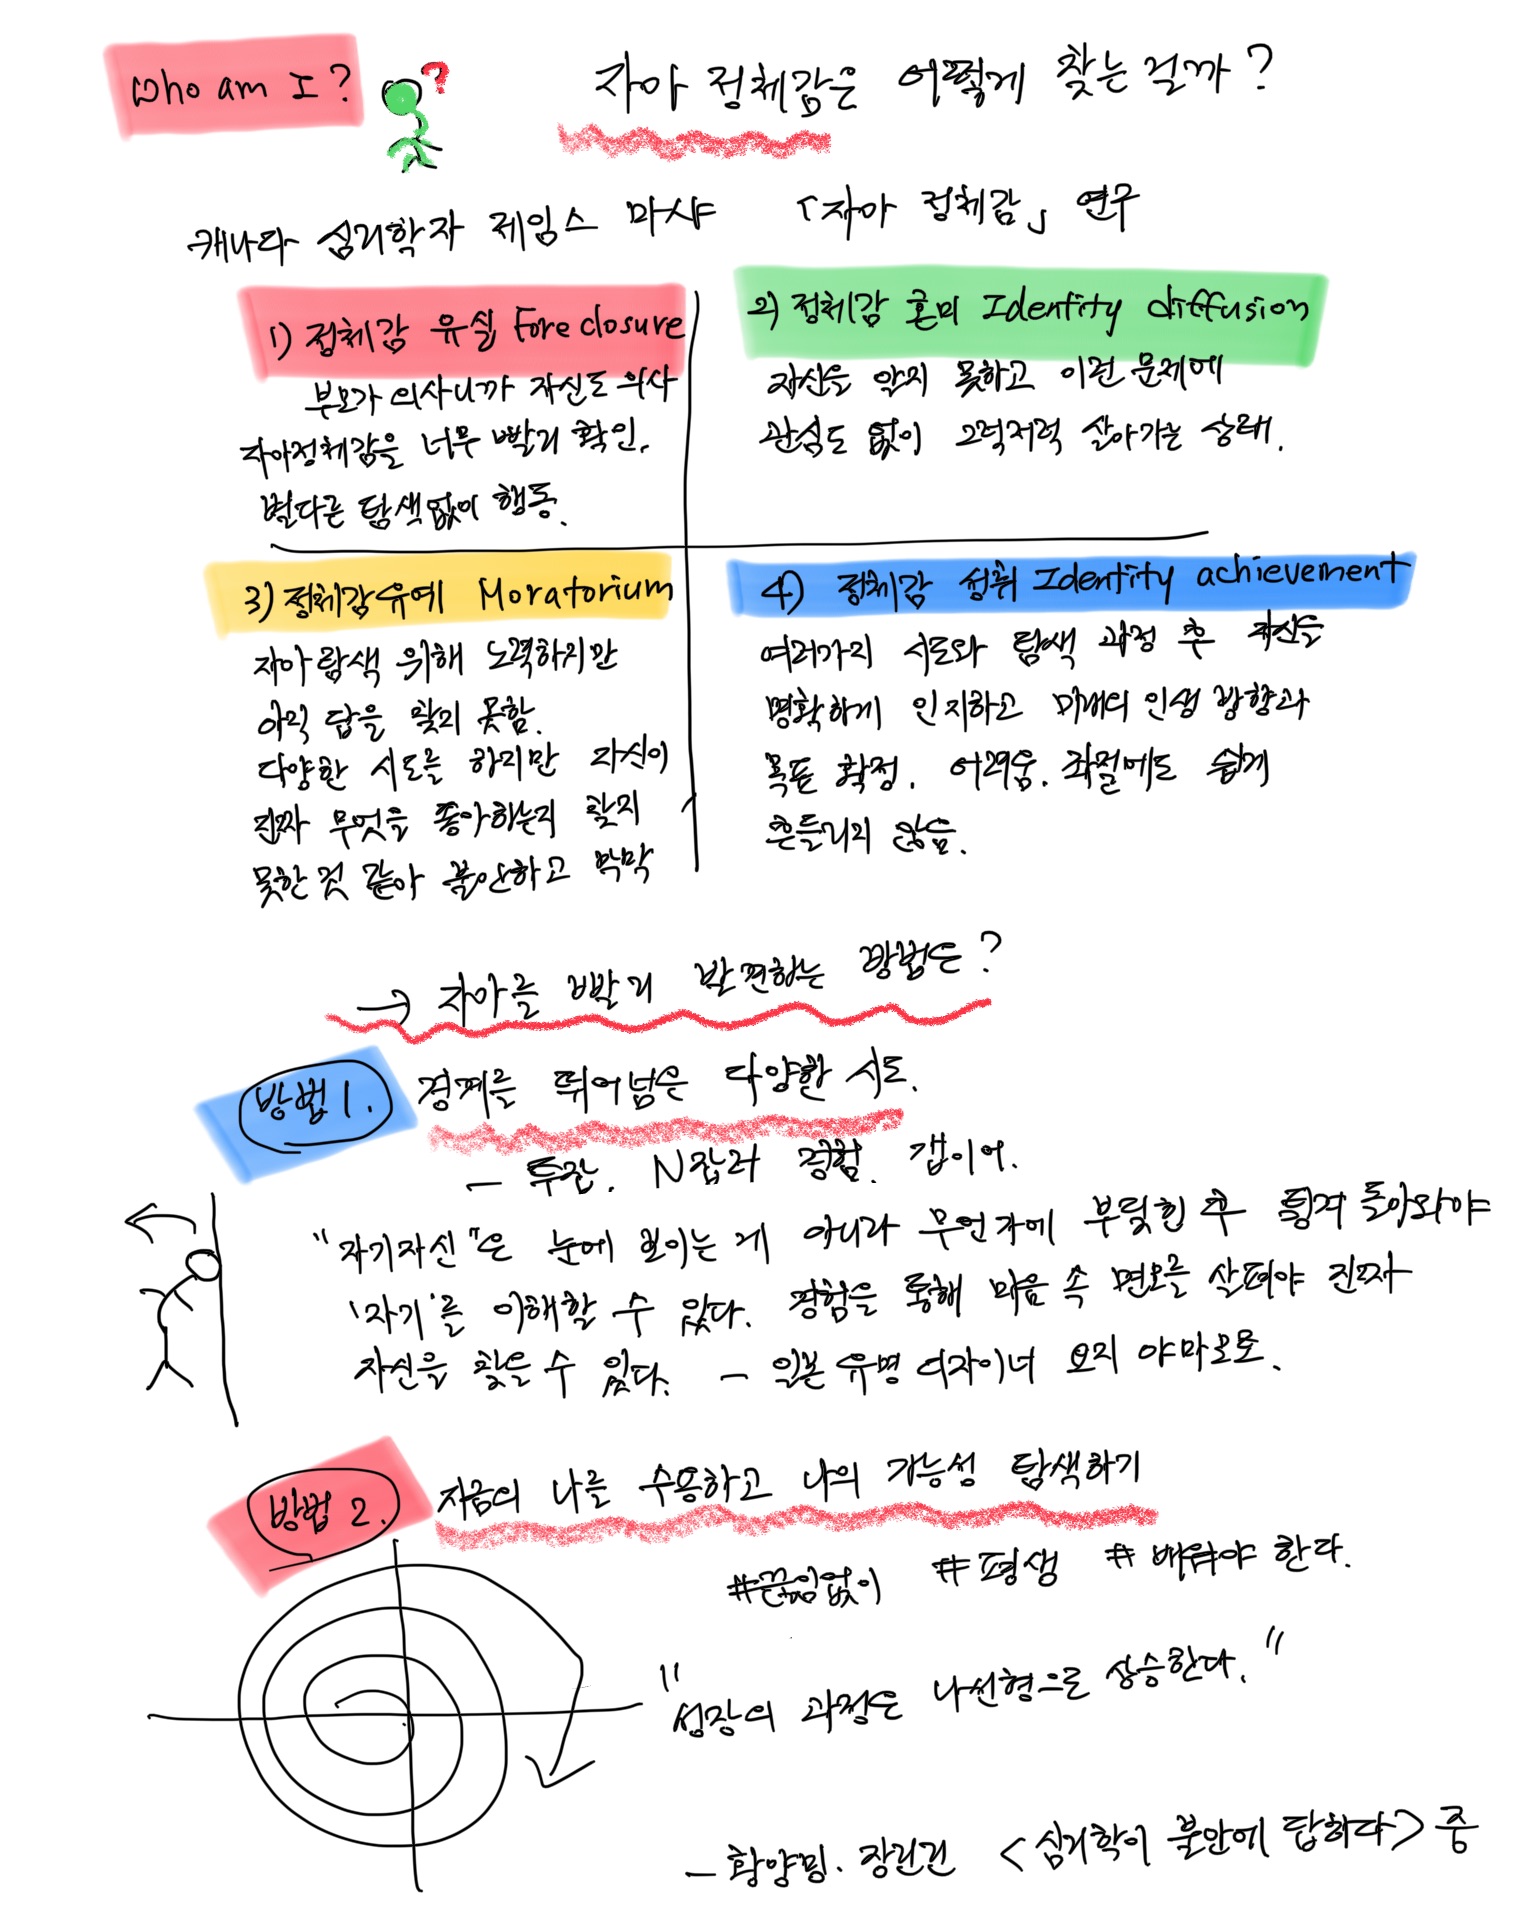 Who am I?
자아 정체감은 어떻게 찾는걸까?
캐나다 심리학자 제임스 마샤 「자아 정체감」 연구
1) 정체감 유실 Foreclosure
부모가 의사니까 자신도 의사
자아정체감을 너무 빨리 확인.
별다른 탐색없이 행동.
2) 정체감 혼미 Identity diffusion
자신을 알지 못하고 이런 문제에
관심도 없이 그럭저럭 살아가는 상태.
3) 정체감유예 Moratorium
자아탐색 위해 노력하지만
아직 답을 찾지 못함.
다양한 시도를 하지만 자신이
진짜 무엇을 좋아하는지 찾지
못한 것 같아 불안하고 막막
4) 정체감 성취 Identity achievement
여러가지 시도와 탐색 과정 후 자신을
명확하게 인지하고 미래의 인생 방향과
목표 확정. 어려움. 좌절에도 쉽게
흔들리지 않음.
→ 자아를 빨리 발견하는 방법은?
방법 1. 경계를 뛰어넘은 다양한 시도.
- 투잡. N잡러 경험. 갭이어.
"자기자신"은 눈에 보이는 게 아니라 무언가에 부딪힌 후 튕겨 돌아와야
'자기'를 이해할 수 있다. 경험을 통해 마음 속 면모를 살펴야 진짜
자신을 찾을 수 있다. - 일본 유명 디자이너 요지 야마모토.
방법 2. 지금의 나를 수용하고 나의 가능성 탐색하기
#끊임없이 #평생 #배워야 한다.
"성장의 과정은 나선형으로 상승한다."
- 황양밍. 장린린 <심리학이 불안에 답하다> 중